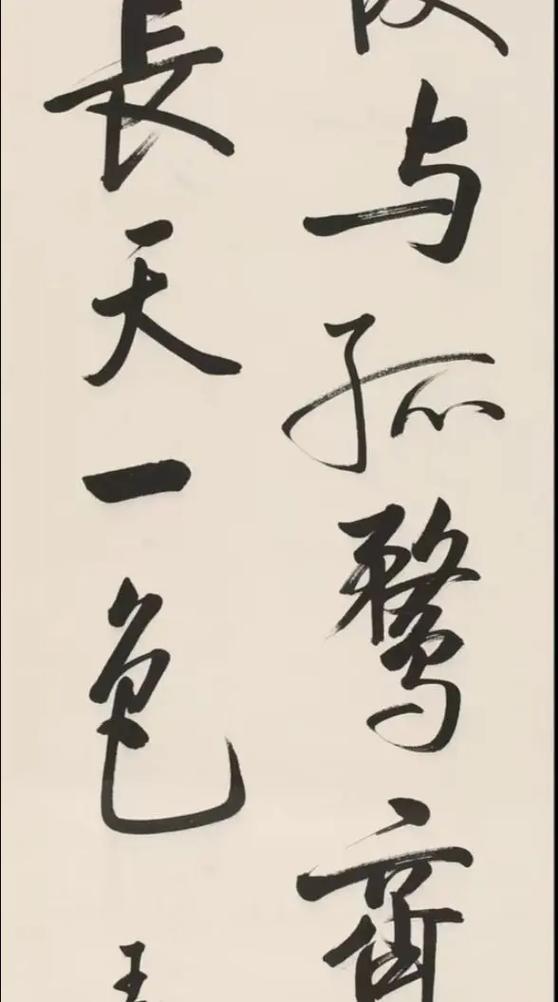 与孤鹜齊
長天一色